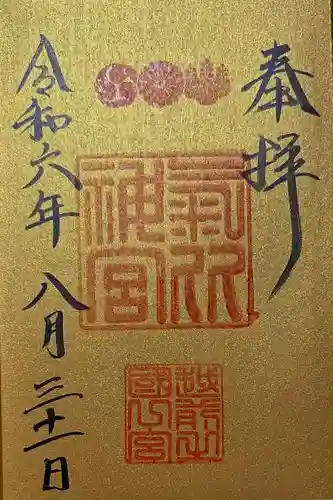 奉拝
氣比神宮
越前之國一宮
令和六年八月三十一日